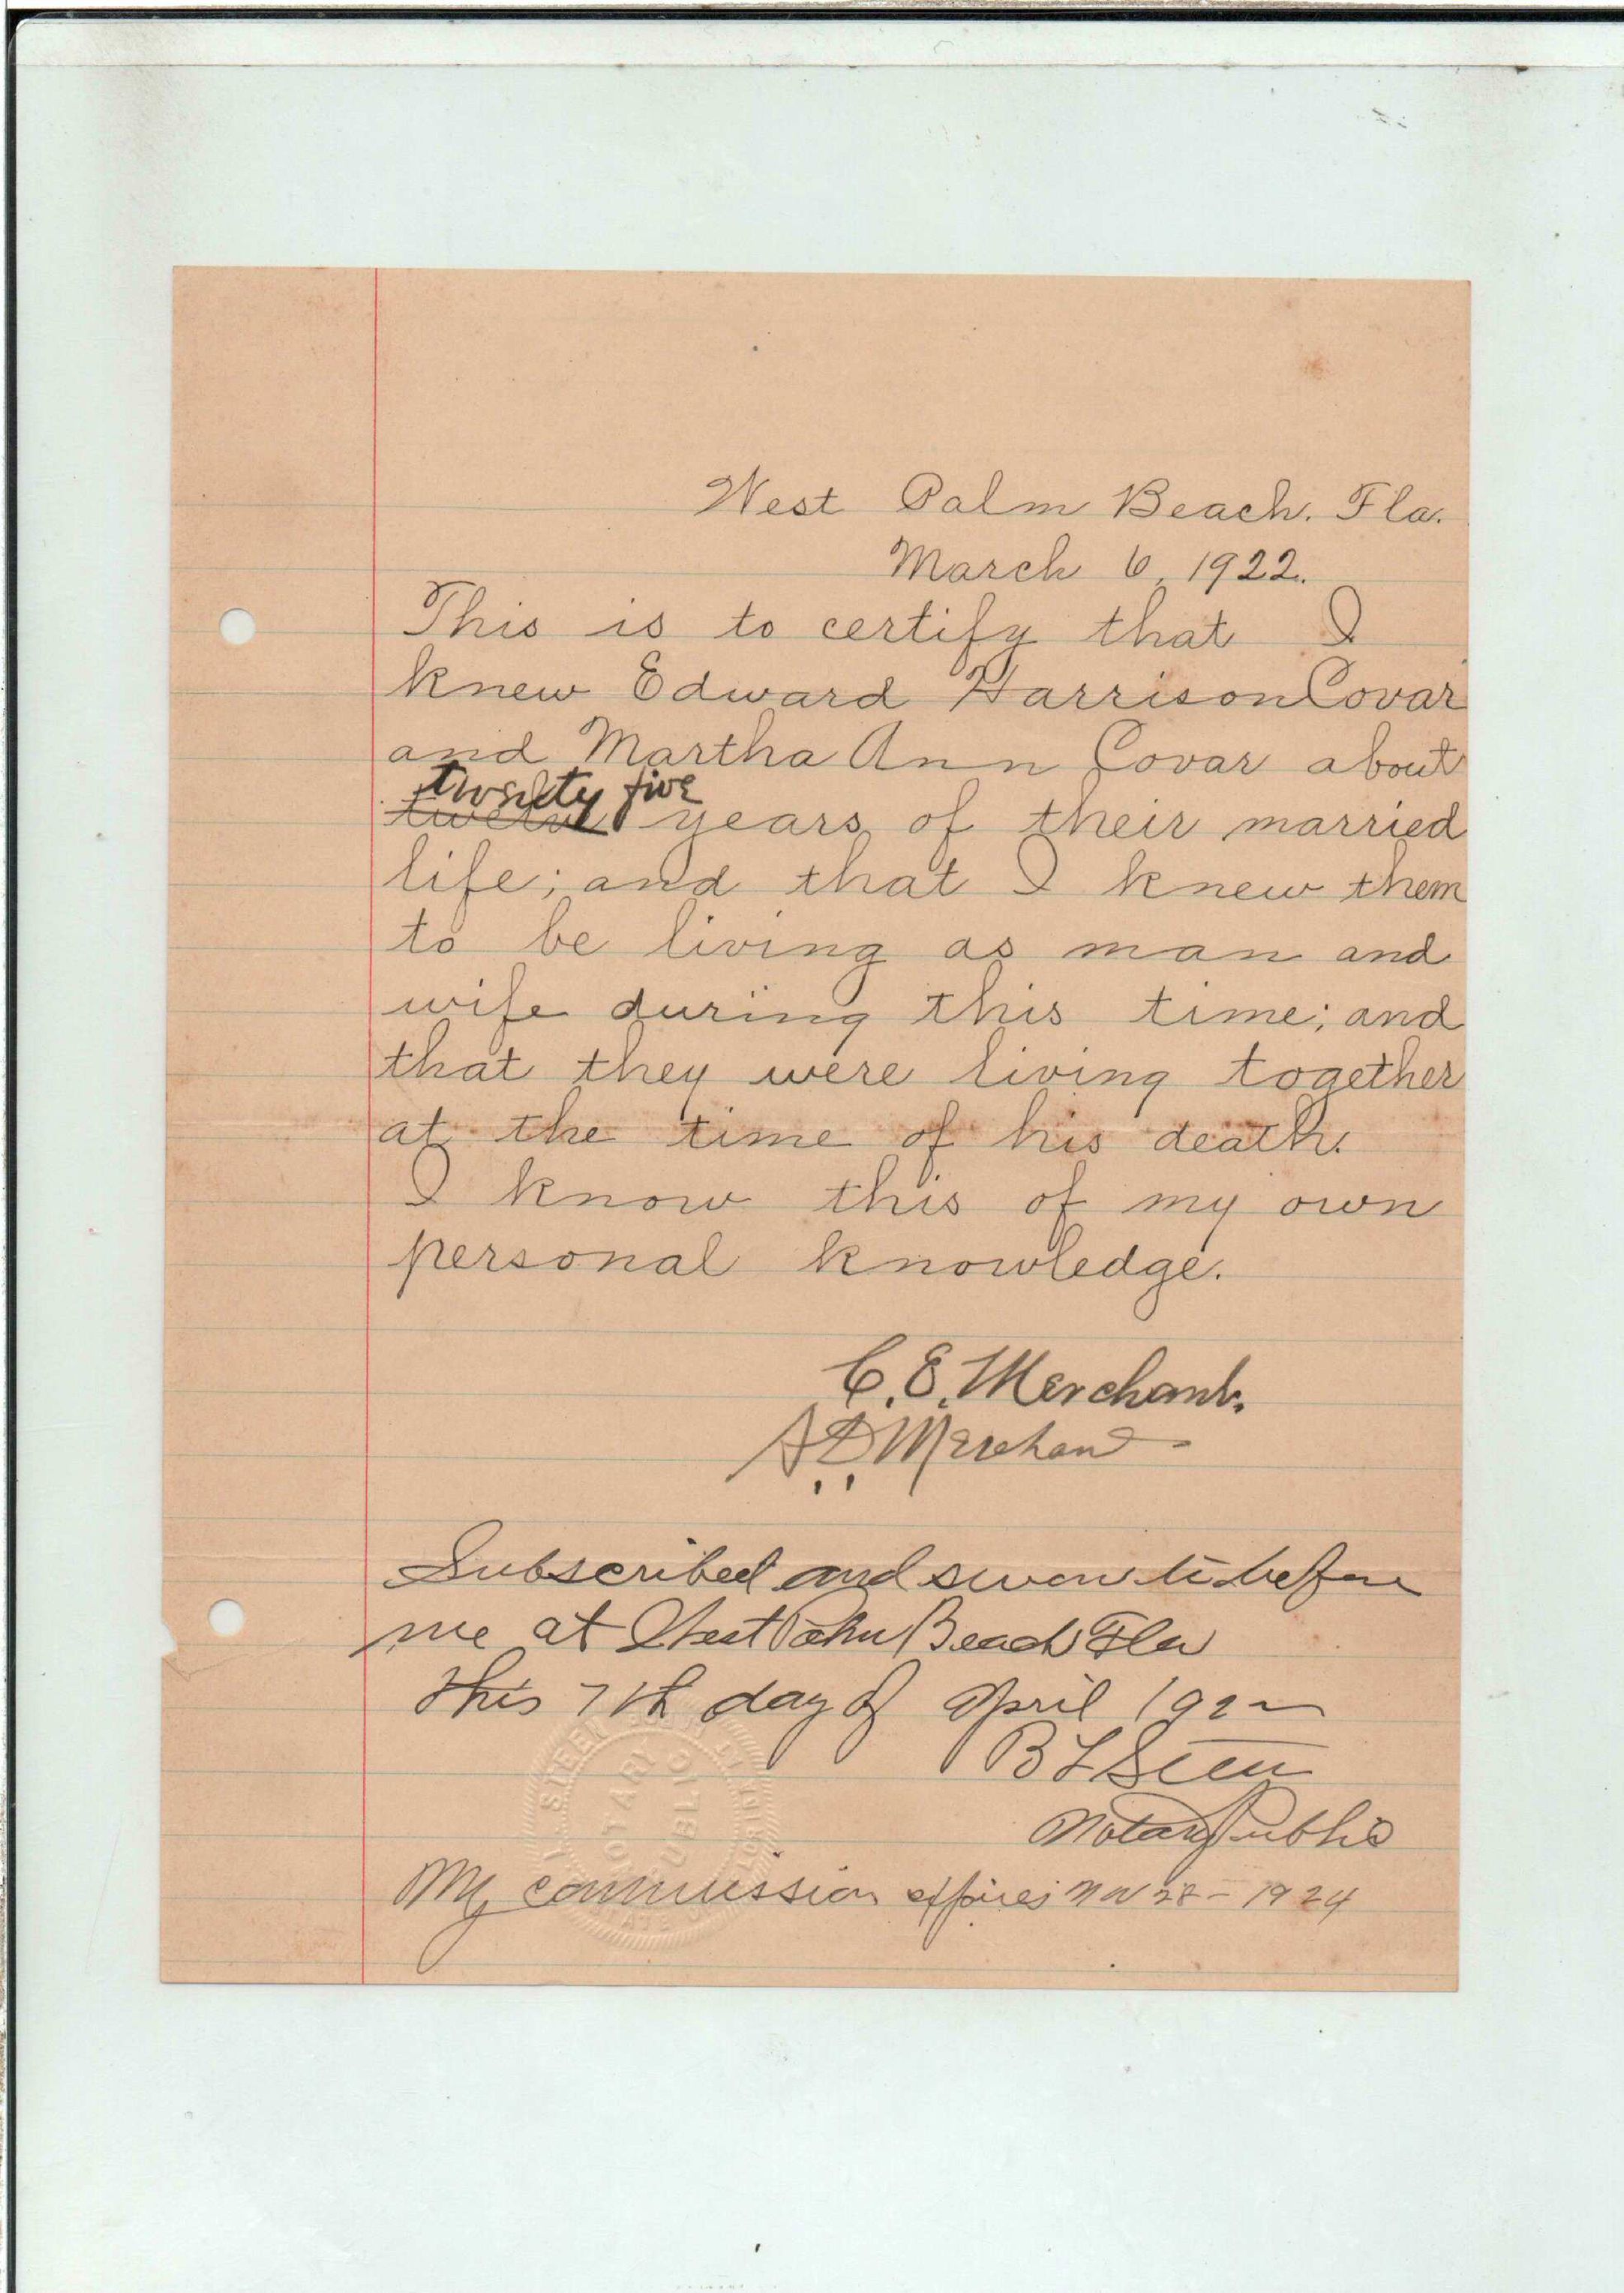 West Palm Beach. Fla.
March 6, 1922.
This is to certify that I
knew Edward Harrison Covar
and Martha Ann Covar about
twenty five
twelve years of their married
life; and that I knew them
to be living as man and
wife during this time; and
that they were living together
at the time of his death.
I know this of my own
personal knowledge.
C. E. Merchant.
A D Merchant
Subscribed and sworn to before
me at West Palm Beach Fla
this 7th day of April 1922
B L
Notary Public
My commission expires Nov 28 - 1924
NOTARY
PUBLIC